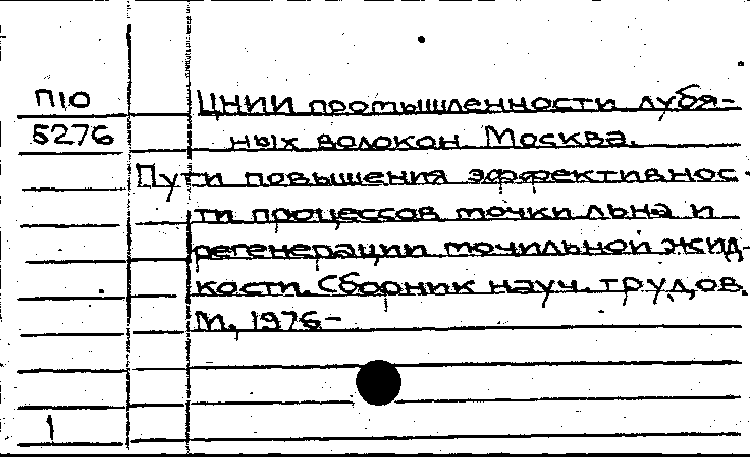 П10
5276
ЦНИИ промышленности лубя-
ных волокон. Москва.
Пути повышения эффективнос-
ти процессов мочки льна и
регенерации мочильной жид-
кости. Сборник науч. трудов.
М., 1976-
1